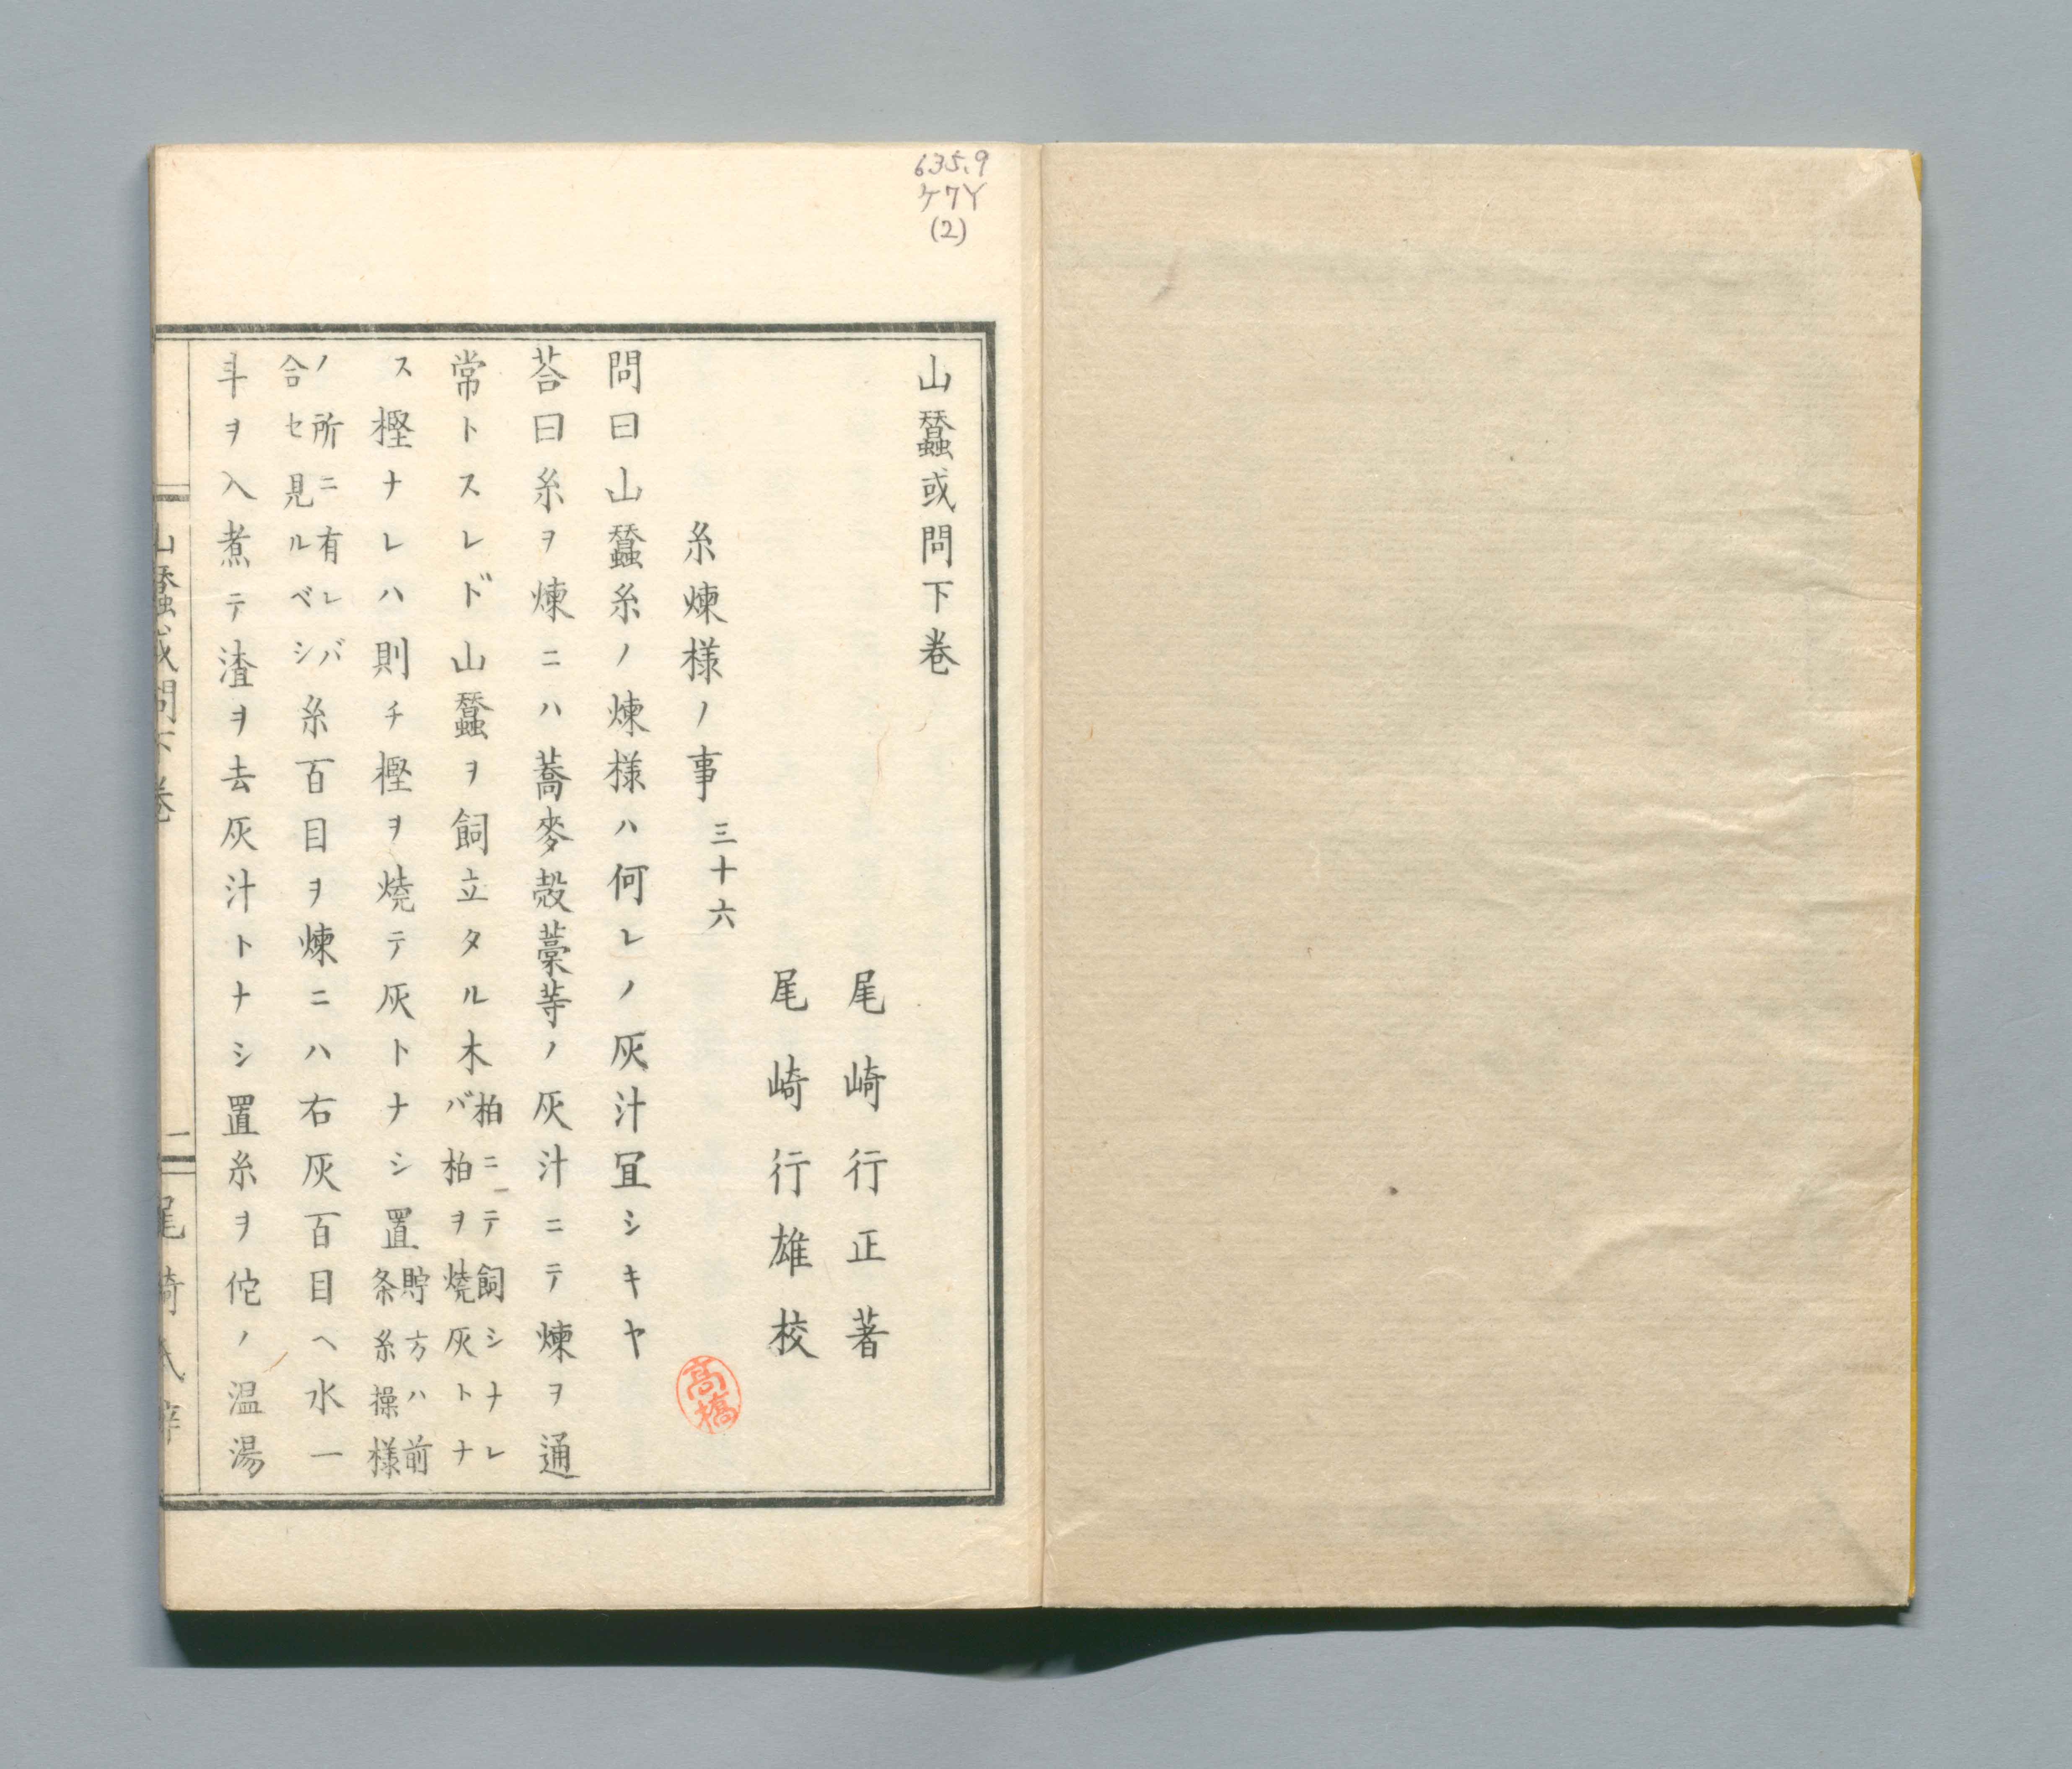 635.9
ケ7Y
(2)
山蠶或問下巻
尾崎行正著
尾崎行雄校
糸煉様ノ事 三十六
問曰山蠶糸ノ煉様ハ何レノ灰汁冝シキヤ
荅曰糸ヲ煉ニハ蕎麥殻藁等ノ灰汁ニテ煉ヲ通
常トスレド山蠶ヲ飼立タル木柏ニテ飼シナレバ柏ヲ燒灰トナ
ス樫ナレハ則チ樫ヲ燒テ灰トナシ置貯方ハ前条糸操様
ノ所ニ有レバ合セ見ルベシ糸百目ヲ煉ニハ右灰百目ヘ水一
斗ヲ入煮テ渣ヲ去灰汁トナシ置糸ヲ佗ノ温湯
山蠶或問下巻
一
尾崎氏
高橋